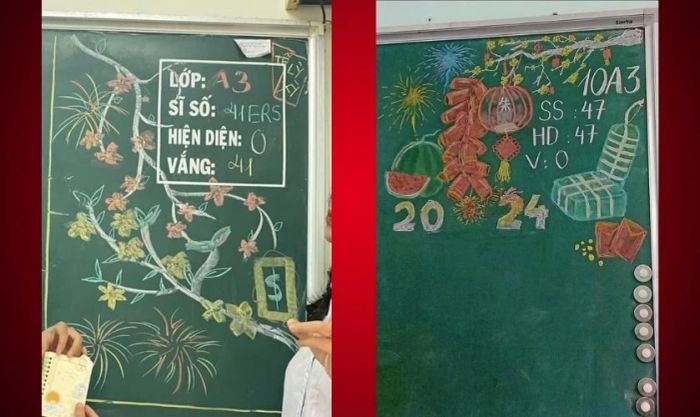 LỚP: A3
SĨ SỐ: 41ERS
HIỆN DIỆN: 0
VẮNG: 41
$
10A3
SS : 47
HD : 47
V : 0
20 24